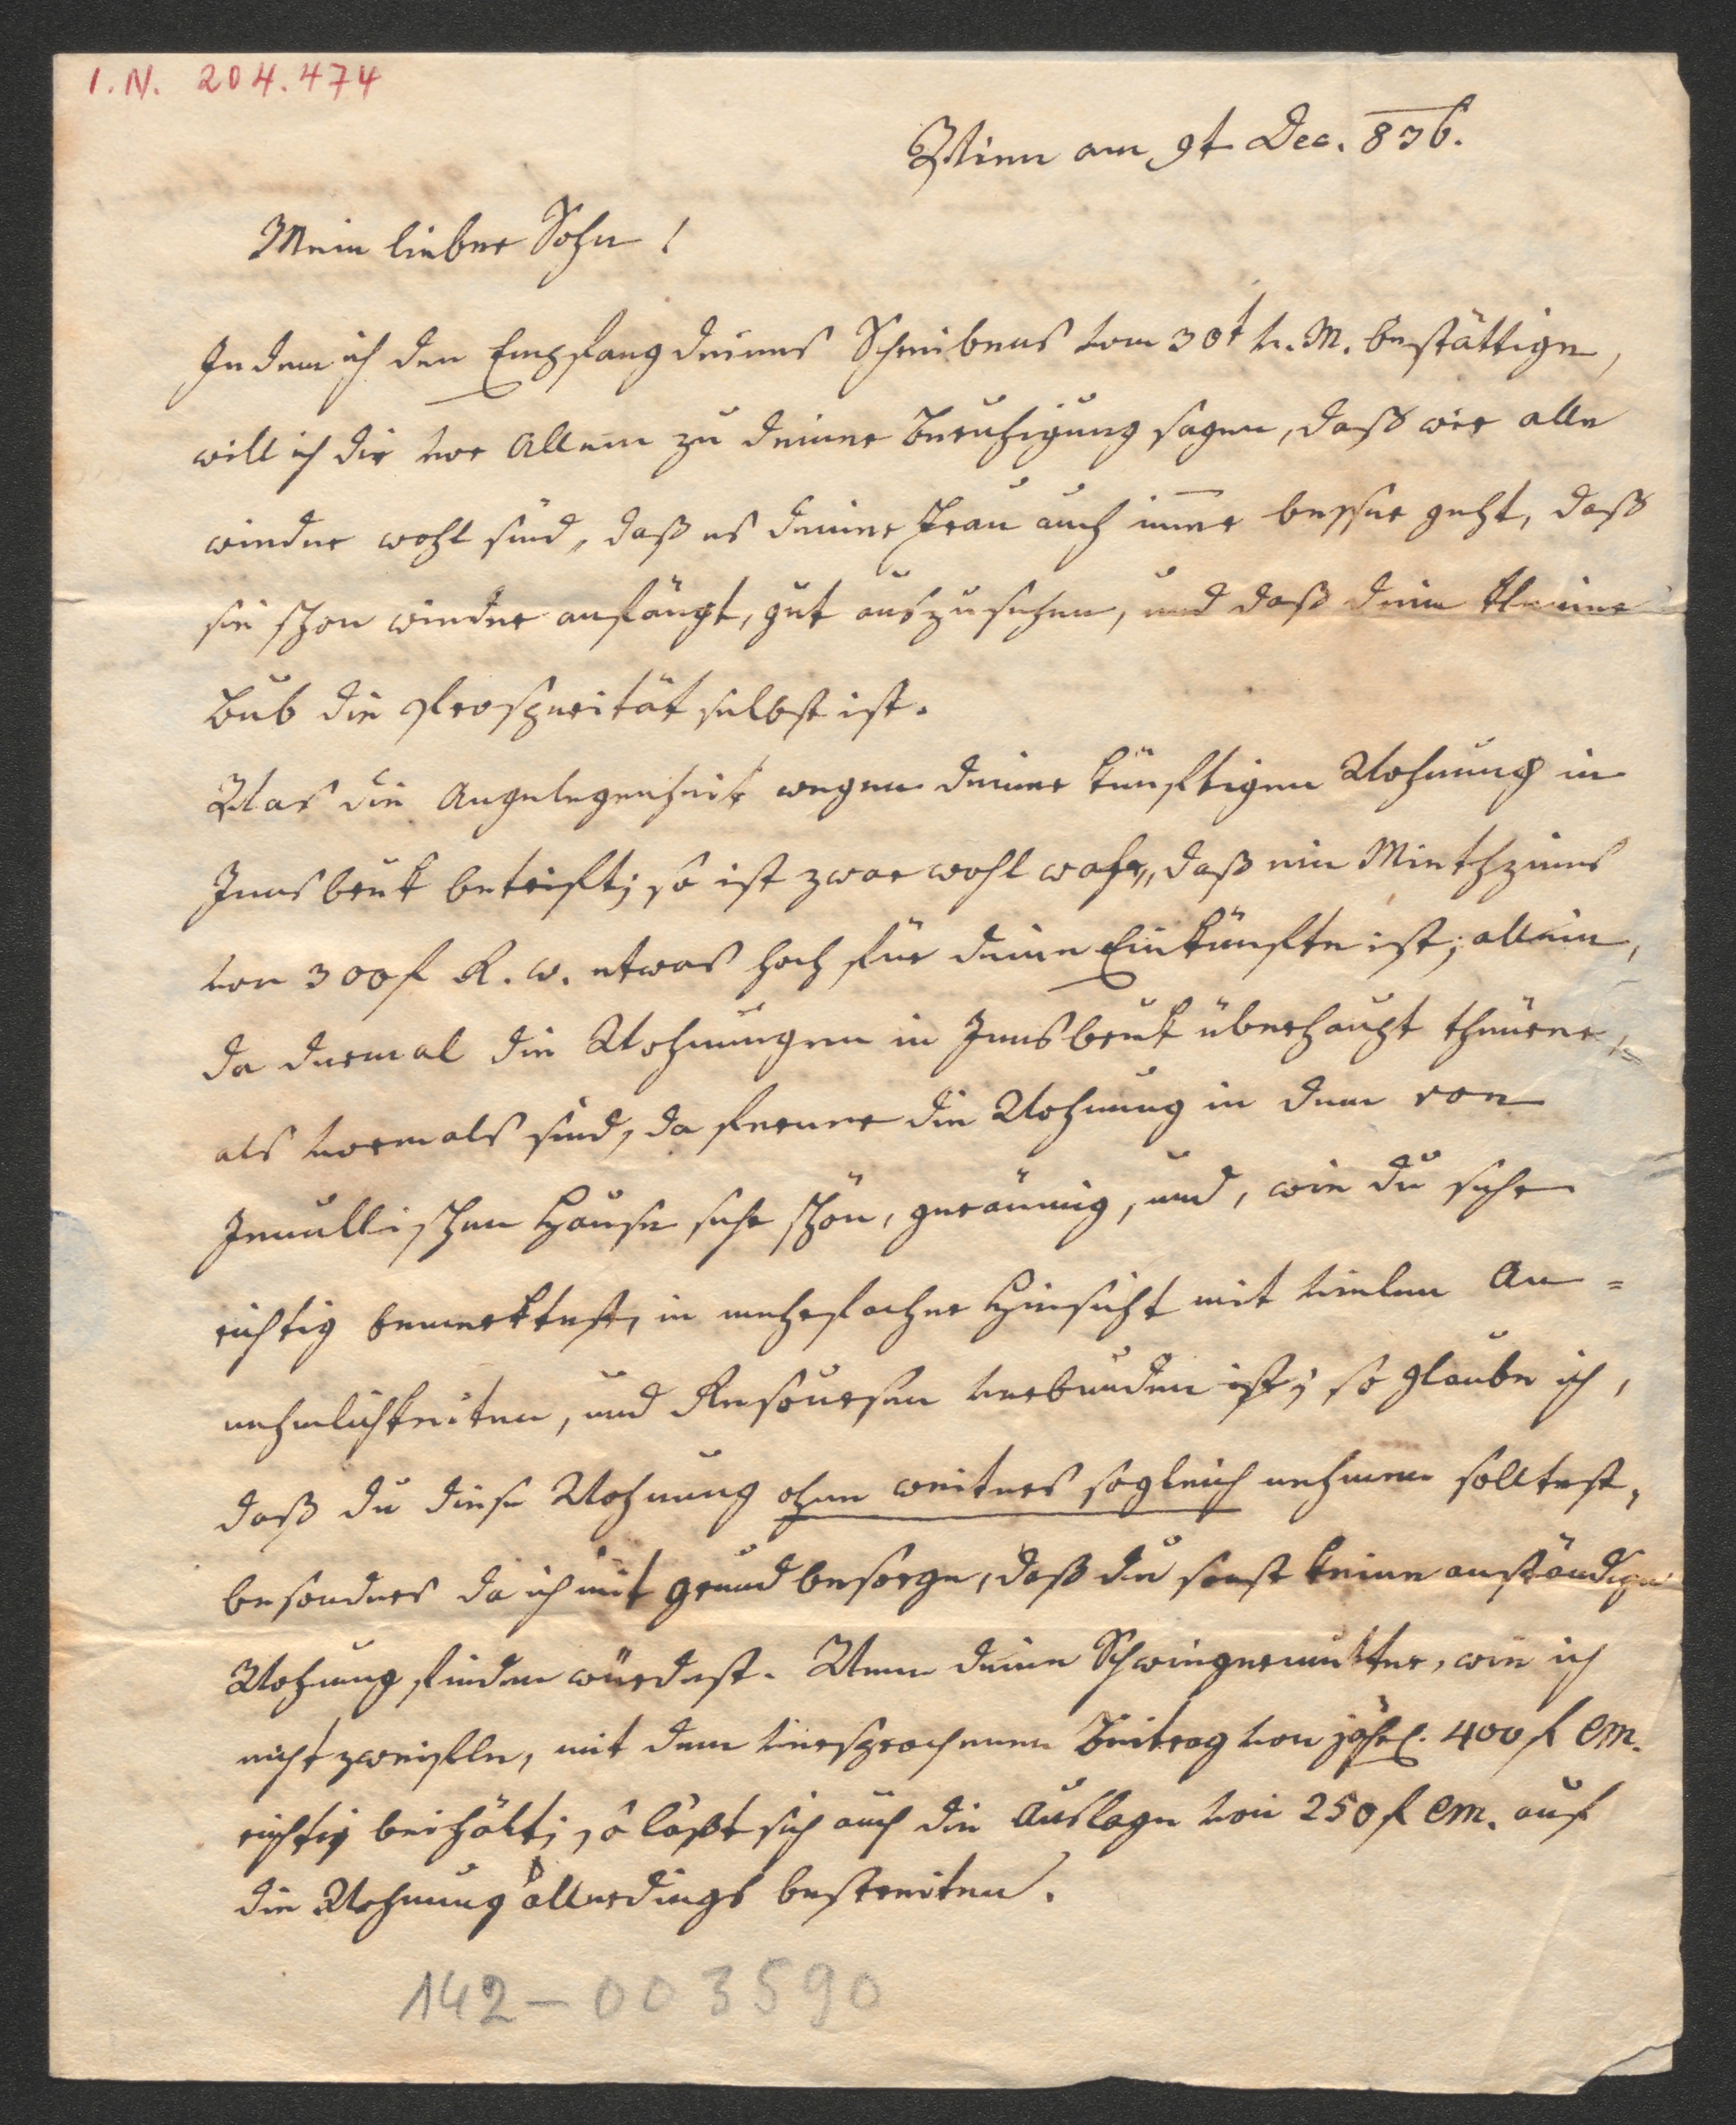 I. N. 204.474
Wien am 9t Dec. 836.
Mein lieber Sohn!
Indem ich den Empfang deines Schreibens vom 30t v. M. bestättige,
will ich dir vor Allem zu deiner Beruhigung sagen, daß wir alle
wieder wohl sind, daß es deiner Frau auch immer besser geht, daß
sie schon wieder anfängt, gut auszusehen, und daß dein kleiner
Bub die Prosperität selbst ist.
Was die Angelegenheit wegen deiner künftigen Wohnung in
Innsbruk betrift; so ist zwar wohl wahr, daß ein Miethzinns
von 300f R. W. etwas hoch für deine Einkünfte ist; allein,
da dermal die Wohnungen in Innsbruk überhaupt theurer,
als vormals sind, da ferner die Wohnung in dem von
schen Hause sehr schön, geräumig, und, wie du sehr
richtig bemerktest, in mehrfacher Hinsicht mit vielen An=
nehmlichkeiten, und Resoursen verbunden ist; so glaube ich,
daß du diese Wohnung ohne weiters sogleich nehmen solltest,
besonders da ich mit Grund besorge, daß du sonst keine anständige
Wohnung finden würdest. Wenn deine Schwiegermutter, wie ich
nicht zweifle, mit dem versprochenen Beitrag von jährl. 400f CM.
richtig beihält; so läßt sich auch die Auslage von 250f CM. auf
die Wohnung allerdings bestreiten.
142-003590